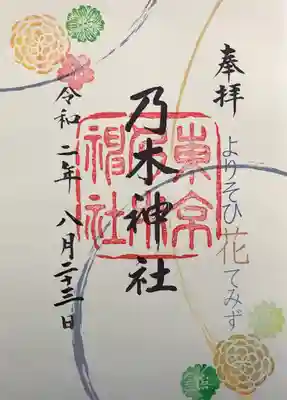 奉拝
よりそひ花てみず
乃木神社
東京
神社
令和二年 八月二十三日